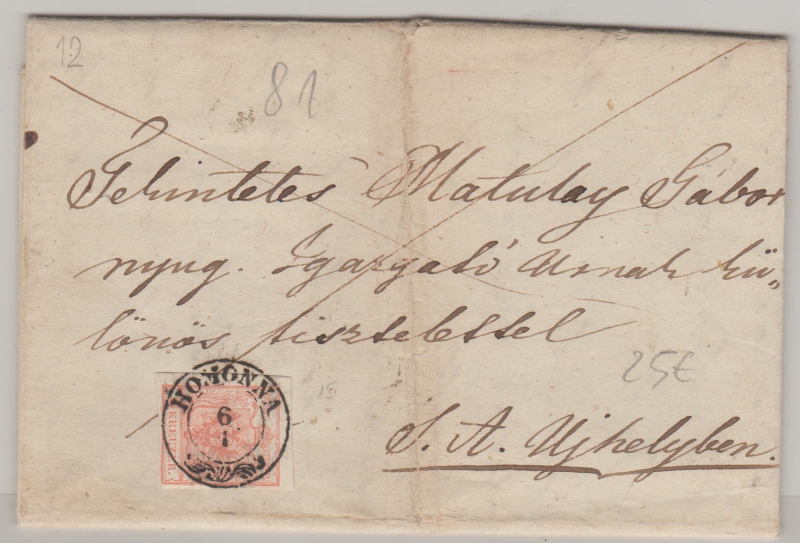 12
81
Tekintetes Matulay Gábor
nyug. Igazgató Urnak kü„
lönös tisztelettel
25€
15
HOMONNA
6
1
S. A. Ujhelyben.